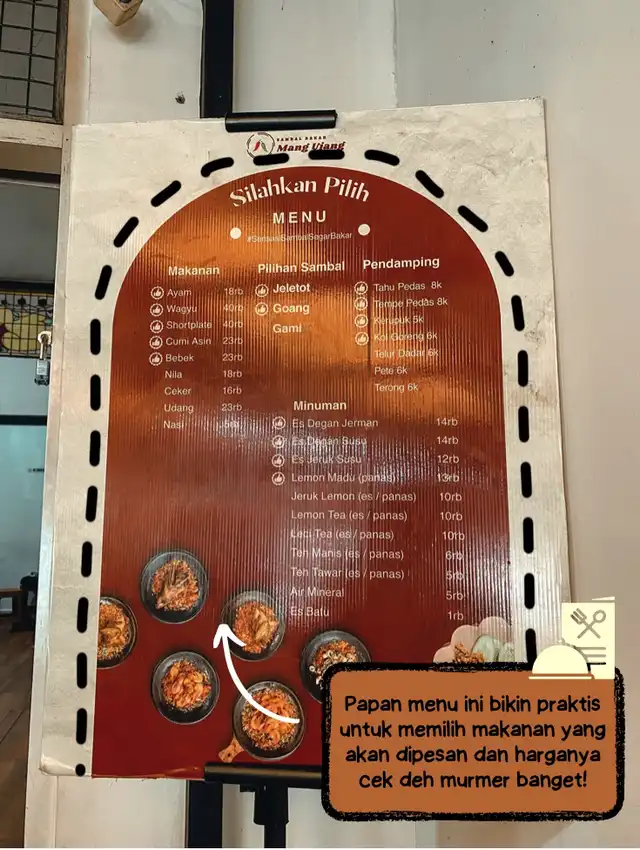 SAMBAL BAKAR
Mang Ujang
Silahkan Pilih
MENU
#SensasiSambalSegarBakar
Makanan
Ayam 18rb
Wagyu 40rb
Shortplate 40rb
Cumi Asin 23rb
Bebek 23rb
Nila 18rb
Ceker 16rb
Udang 23rb
Nasi 5rb
Pilihan Sambal
Jeletot
Goang
Gami
Pendamping
Tahu Pedas 8k
Tempe Pedas 8k
Kerupuk 5k
Kol Goreng 6k
Telur Dadar 6k
Pete 6k
Terong 6k
Minuman
Es Degan Jerman 14rb
Es Degan Susu 14rb
Es Jeruk Susu 12rb
Lemon Madu (panas) 13rb
Jeruk Lemon (es / panas) 10rb
Lemon Tea (es / panas) 10rb
Leci Tea (es / panas) 10rb
Teh Manis (es / panas) 6rb
Teh Tawar (es / panas) 5rb
Air Mineral 5rb
Es Batu 1rb
Papan menu ini bikin praktis
untuk memilih makanan yang
akan dipesan dan harganya
cek deh murmer banget!